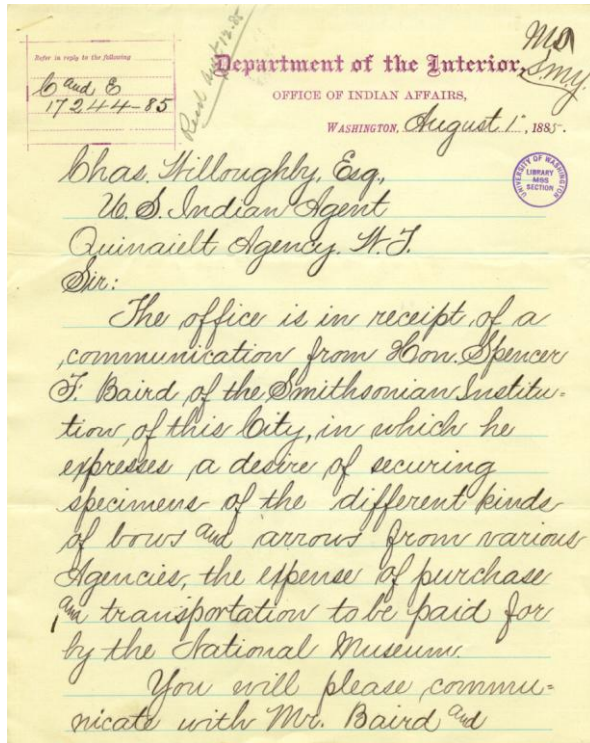 Refer in reply to the following
C and E
17244-85
Recd Aug 12. 85
MS
Smy.
Department of the Interior,
OFFICE OF INDIAN AFFAIRS,
WASHINGTON, August 1", 1885.
UNIVERSITY OF WASHINGTON
LIBRARY
MSS
SECTION
Chas. Willoughby, Esq.,
U. S. Indian Agent
Quinaielt Agency. W. T.
Sir:
The office is in receipt of a
communication from Hon. Spencer
F. Baird of the Smithsonian Institu=
tion, of this City, in which he
expresses a desire of securing
specimens of the different kinds
of bows and arrows from various
Agencies, the expense of purchase
and transportation to be paid for
by the National Museum.
You will please commu=
nicate with Mr. Baird and